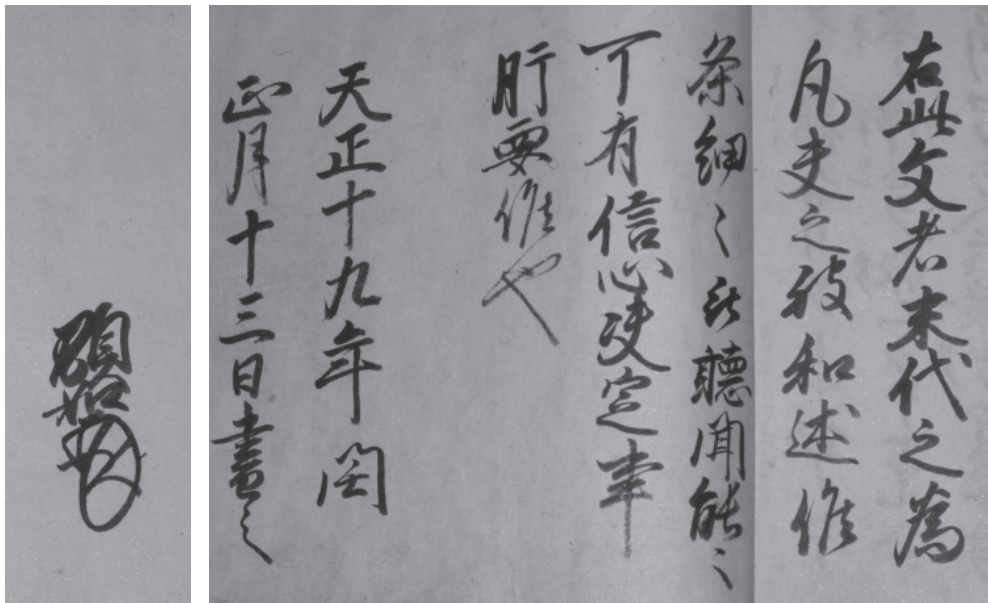 右此文者末代之為
凡夫之被和述候
条細〻被聴聞能〻
可有信心決定事
肝要候也
天正十九年閏
正月十三日書之
顕如